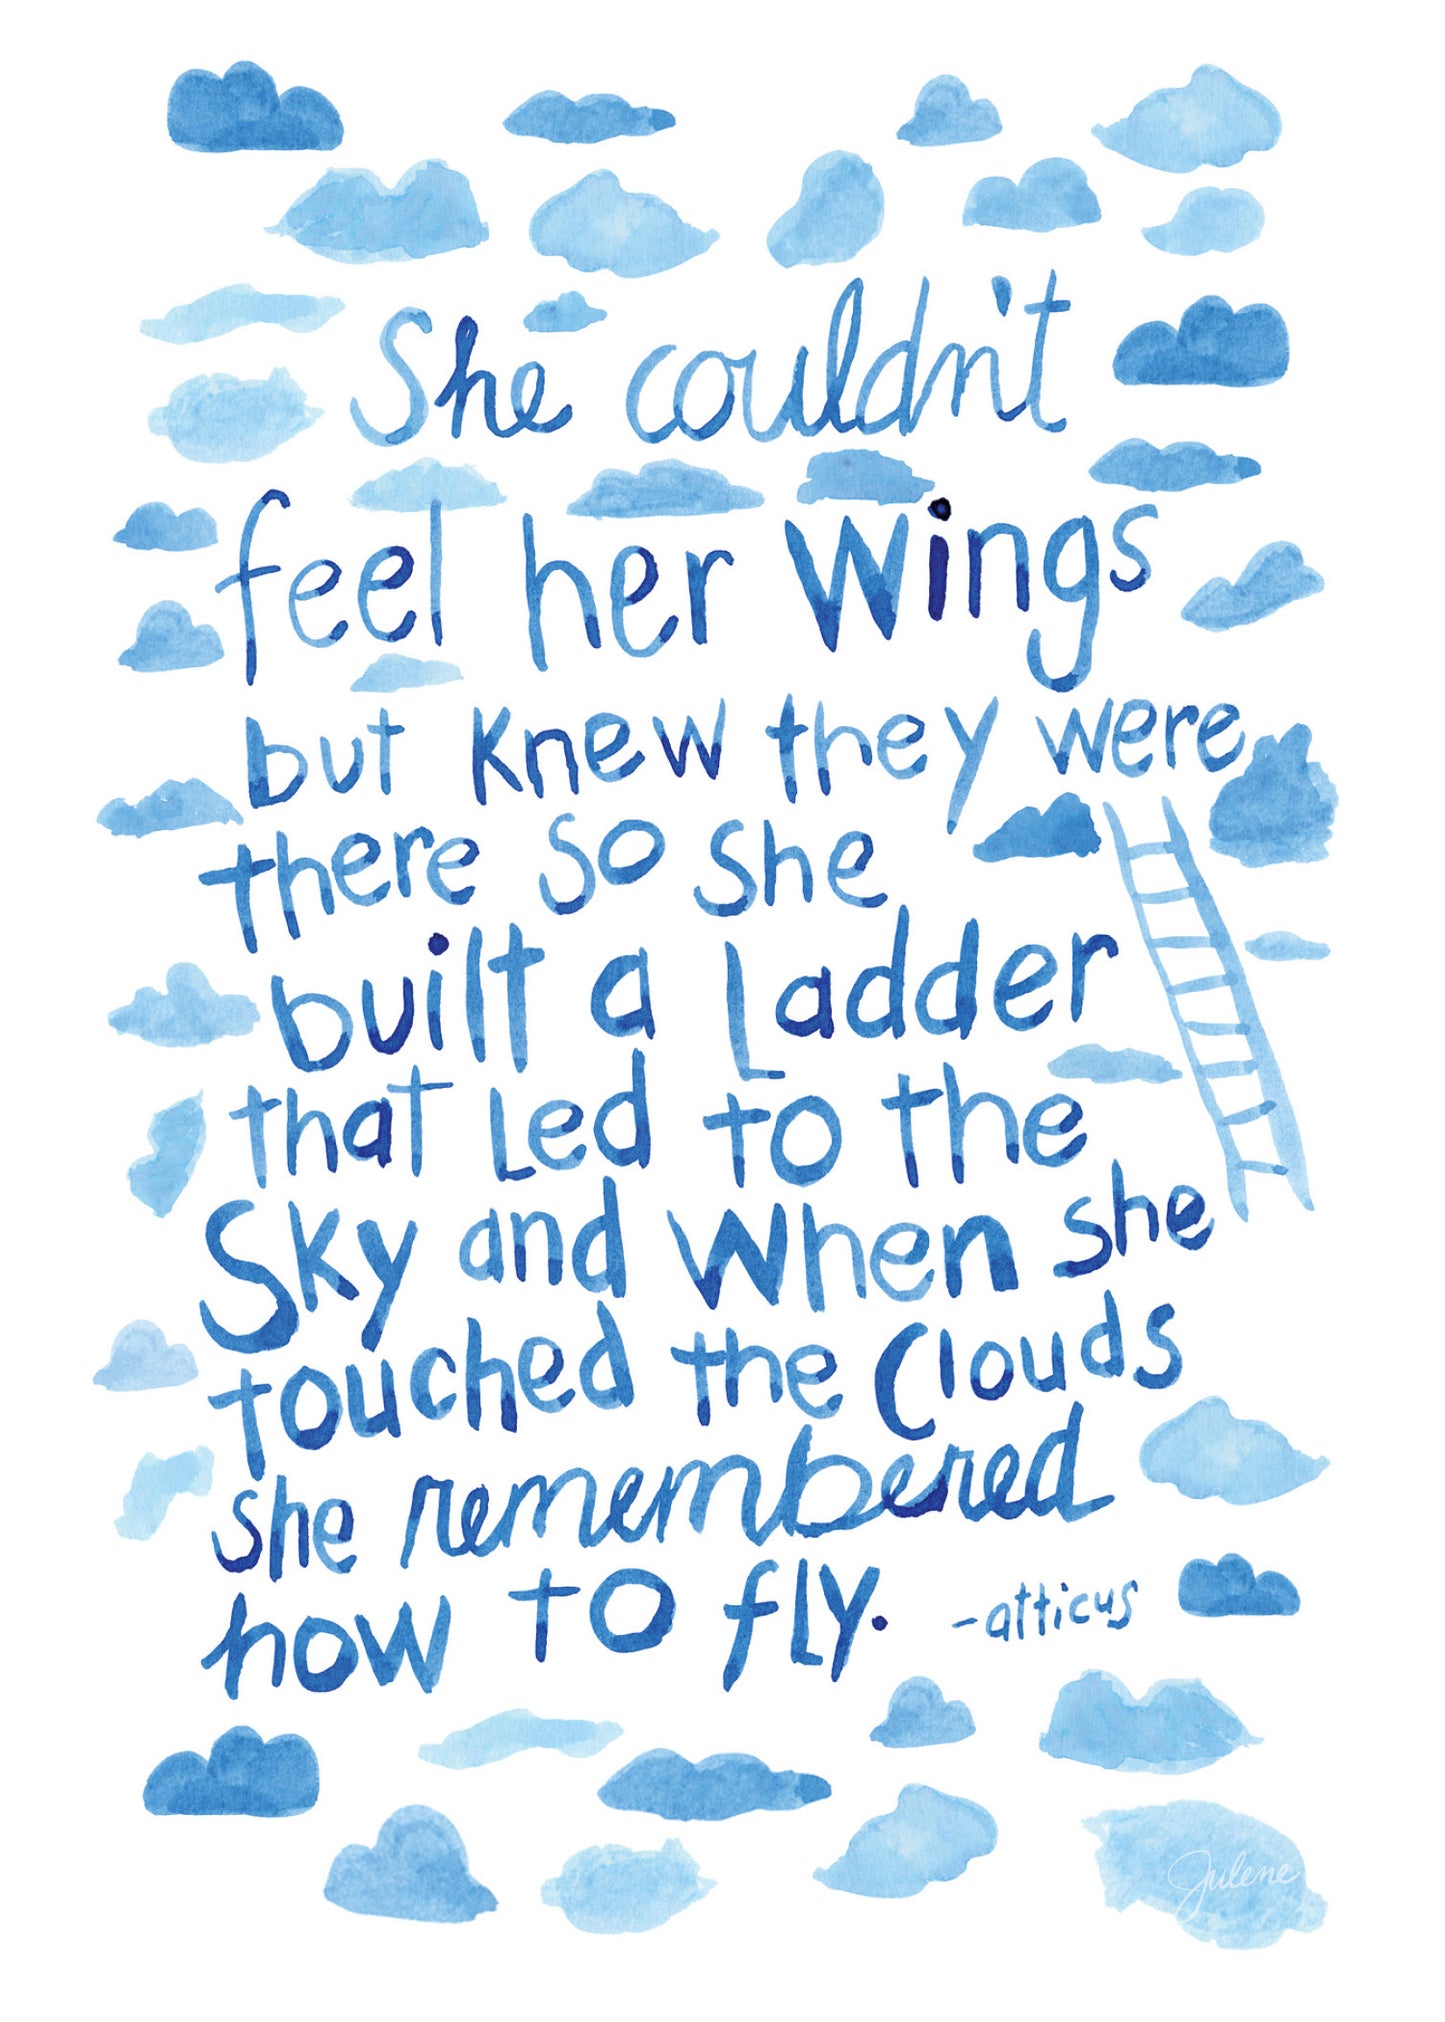 She couldn't
feel her wings
but knew they were
there so she
built a Ladder
that Led to the
Sky and when she
touched the Clouds
she remembered
how to fly.
-atticus
Julene